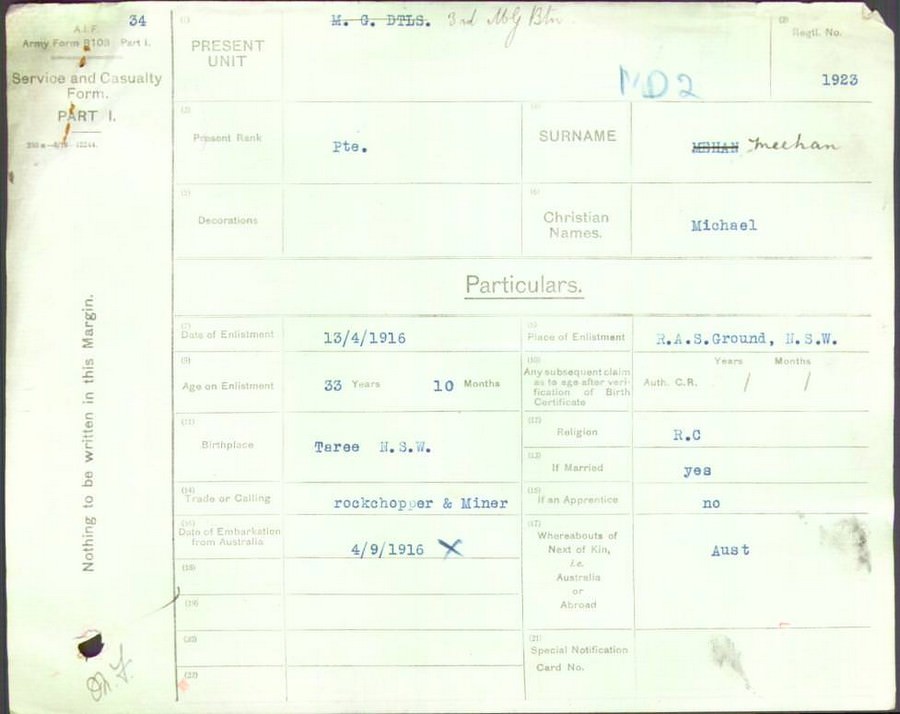 34
A.I.F.
Army Form B103 Part I.
Service and Casualty
Form.
PART I.
Nothing to be written in this Margin.
(1)
PRESENT
UNIT
M. G. DTLS. 3rd MG Btn
MD2
(2)
Regtl. No.
1923
(3)
Present Rank
Pte.
(4)
SURNAME
MEHAN Meehan
(5)
Decorations
(6)
Christian
Names.
Michael
Particulars.
(7)
Date of Enlistment
13/4/1916
(8)
Place of Enlistment
R.A.S.Ground, N.S.W.
(9)
Age on Enlistment
33 Years 10 Months
(10)
Any subsequent claim
as to age after veri-
fication of Birth
Certificate
Years Months
Auth. C.R. / /
(11)
Birthplace
Taree N.S.W.
(12)
Religion
R.C
(13)
If Married
yes
(14)
Trade or Calling
rockchopper & Miner
(15)
If an Apprentice
no
(16)
Date of Embarkation
from Australia
4/9/1916 X
(17)
Whereabouts of
Next of Kin,
i.e.
Australia
or
Abroad
Aust
(18)
(19)
(20)
(21)
Special Notification
Card No.
(22)